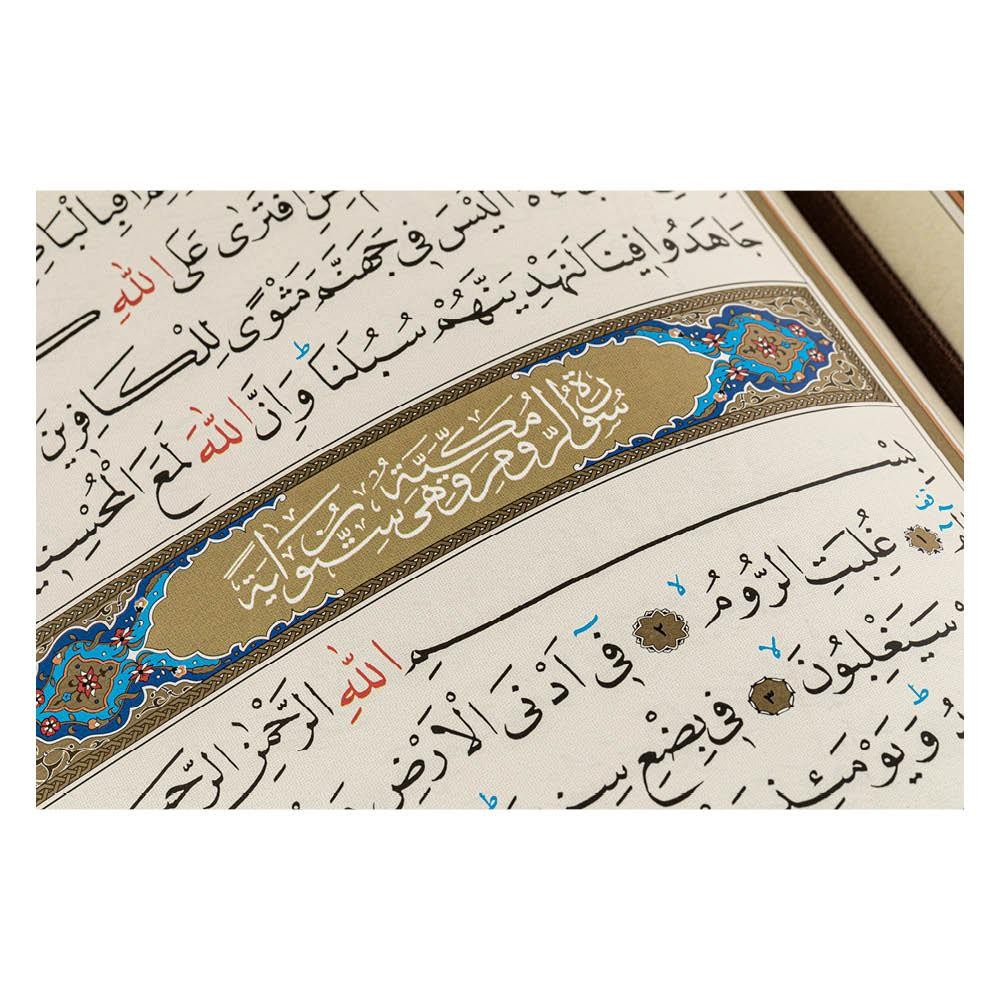 اَفَبِالْبَا
افْتَرٰى عَلَى اللّٰهِ كَ
اَلَيْسَ فٖى جَهَنَّمَ مَثْوًى لِلْكَافِرٖينَ
جَاهَدُوا فٖينَا لَنَهْدِيَنَّهُمْ سُبُلَنَا ط وَاِنَّ اللّٰهَ لَمَعَ الْمُحْسِنٖينَ
سُورَةُ الرُّومِ مَكِّيَّةٌ وَهِىَ سِتُّونَ اٰيَةً
بِسْمِ اللّٰهِ الرَّحْمٰنِ الرَّحٖ
١ غُلِبَتِ الرُّومُ لا ٢ فٖى اَدْنَى الْاَرْضِ
سَيَغْلِبُونَ لا ٣ فٖى بِضْعِ سِنٖ
ط وَيَوْمَئِذٍ